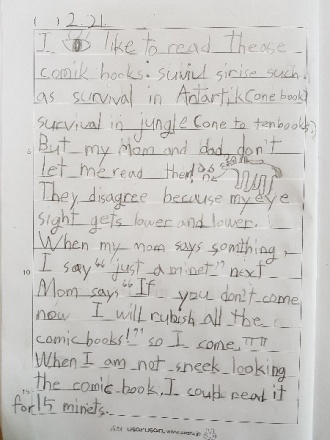 ( ) 2.21.
I like to read thease
comik books. suvivl sirise such
as survival in Antartik (one book)
survival in jungle (one to ten books.)
But my Mom and dad don't
let me read them!
They disagree because my eye
sight gets lower and lower.
When my mom says somthing,
I say "just a minet!" next
Mom says "If you don't come
now I will rubish all the
comic books!" so I come ㅠㅠ
When I am not sneek looking
the comic book, I could read it
for 15 minets.